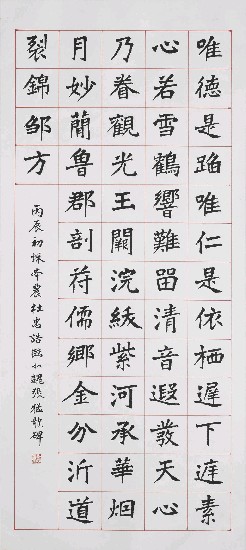 唯德是蹈唯仁是依栖遲下庭素
心若雪鶴響難留清音遐發天心
乃眷觀光王闕浣紱紫河承華烟
月妙蘭魯郡剖符儒鄉金分沂道
裂錦邹方
丙辰初秋李農杜忠誥臨北魏張猛龍碑